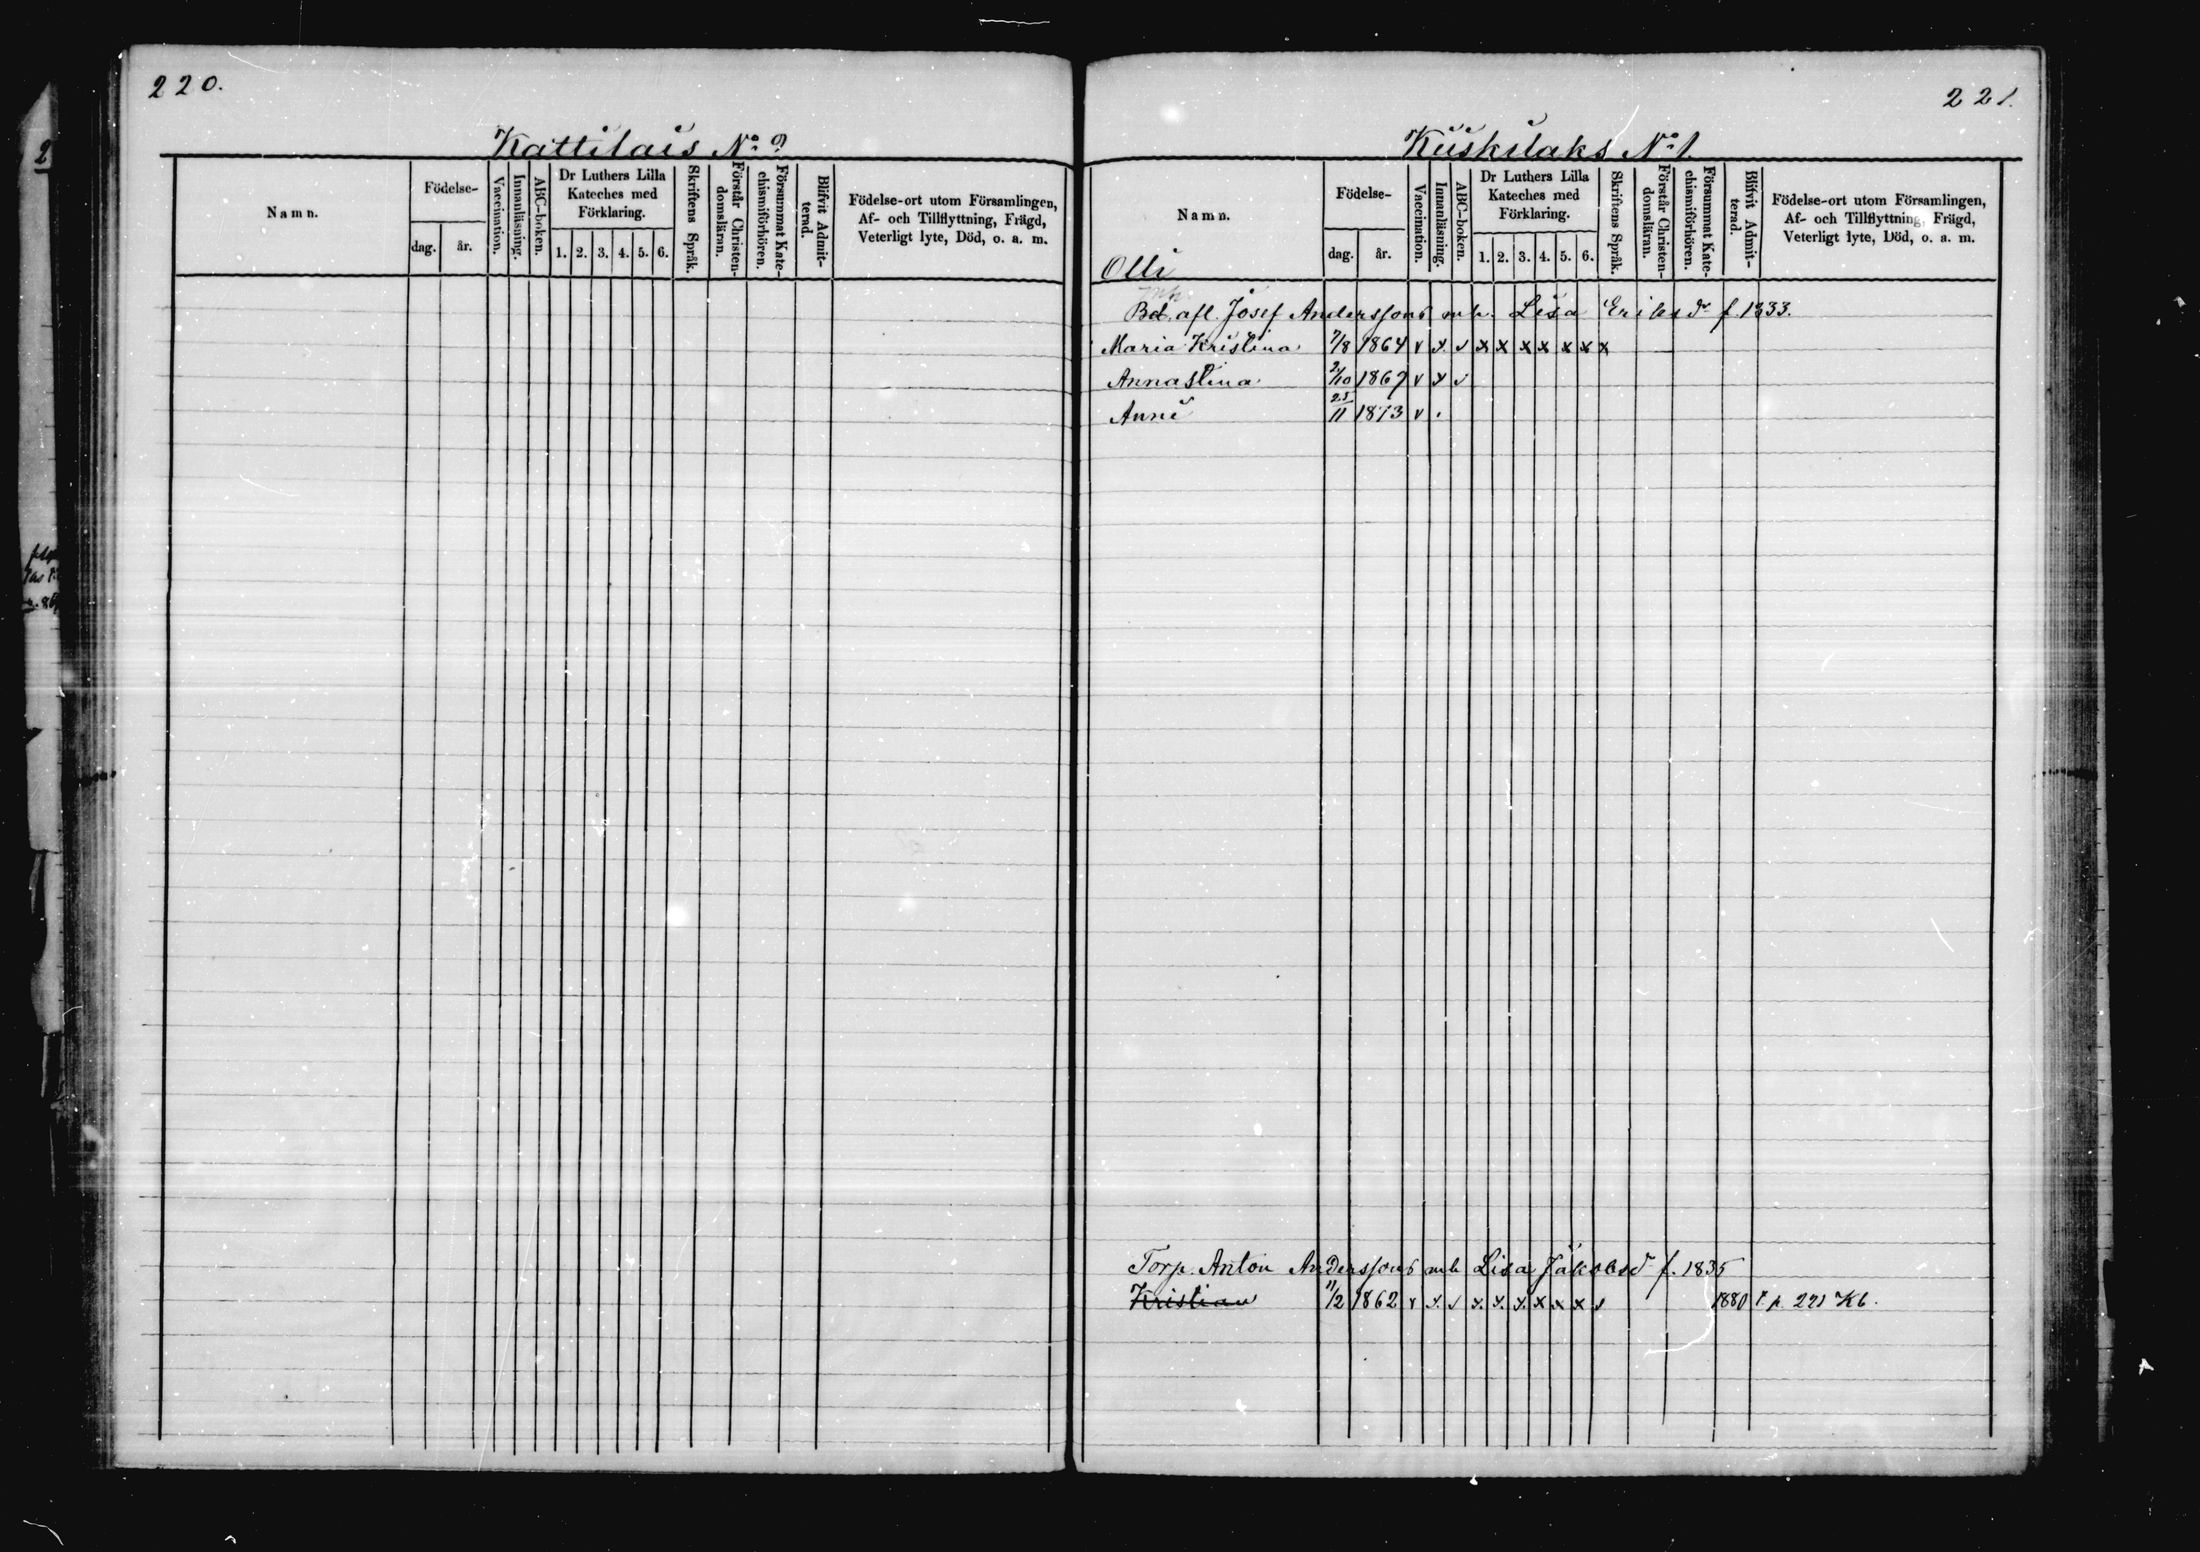 220.
Kattilais No 2
Namn.
Födelse-
dag.
år.
Vaccination.
Innanläsning.
ABC-boken.
Dr Luthers Lilla
Kateches med
Förklaring.
1. 2. 3. 4. 5. 6.
Skriftens Språk.
Förstår Christen-
domsläran.
Försummat Kate-
chismiförhören.
Blifvit Admit-
terad.
Födelse-ort utom Församlingen,
Af- och Tillflyttning, Frägd,
Veterligt lyte, Död, o. a. m.
221.
Kuiskilaks No 1.
Namn.
Olli
Födelse-
dag.
år.
Vaccination.
Innanläsning.
ABC-boken.
Dr Luthers Lilla
Kateches med
Förklaring.
1. 2. 3. 4. 5. 6.
Skriftens Språk.
Förstår Christen-
domsläran.
Försummat Kate-
chismiförhören.
Blifvit Admit-
terad.
Födelse-ort utom Församlingen,
Af- och Tillflyttning, Frägd,
Veterligt lyte, Död, o. a. m.
Bd. afl. Josef Anderssons enk. Lisa Eriksdr f. 1833.
Maria Kristina 7/8 1864 v x. v x x x x x x x
Annastina 2/10 1867 v x v
Anni 25/11 1873 v .
Torp. Anton Anderssons enk Lisa Jakobsdr f. 1835
Kristian 11/2 1862 v x. v x. x. x. x x x v 1880 T. p. 221 Kb.